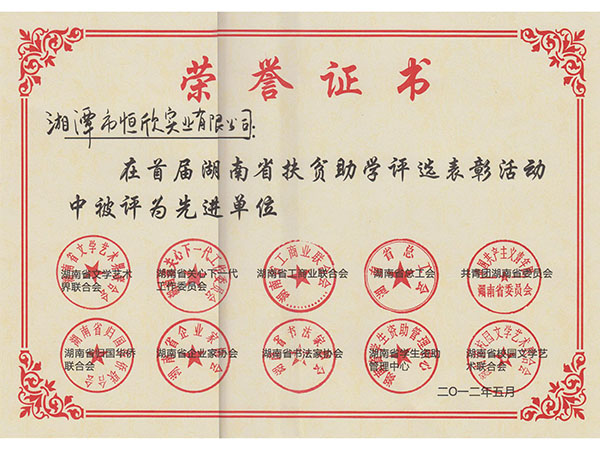 荣誉证书
湘潭市恒欣实业有限公司：
在首届湖南省扶贫助学评选表彰活动
中被评为先进单位
湖南省文学艺术界联合会
湖南省关心下一代工作委员会
湖南省工商业联合会
湖南省总工会
共青团湖南省委员会
湖南省归国华侨联合会
湖南省企业家协会
湖南省书法家协会
湖南省学生资助管理中心
湖南省校园文学艺术联合会
二〇一二年五月